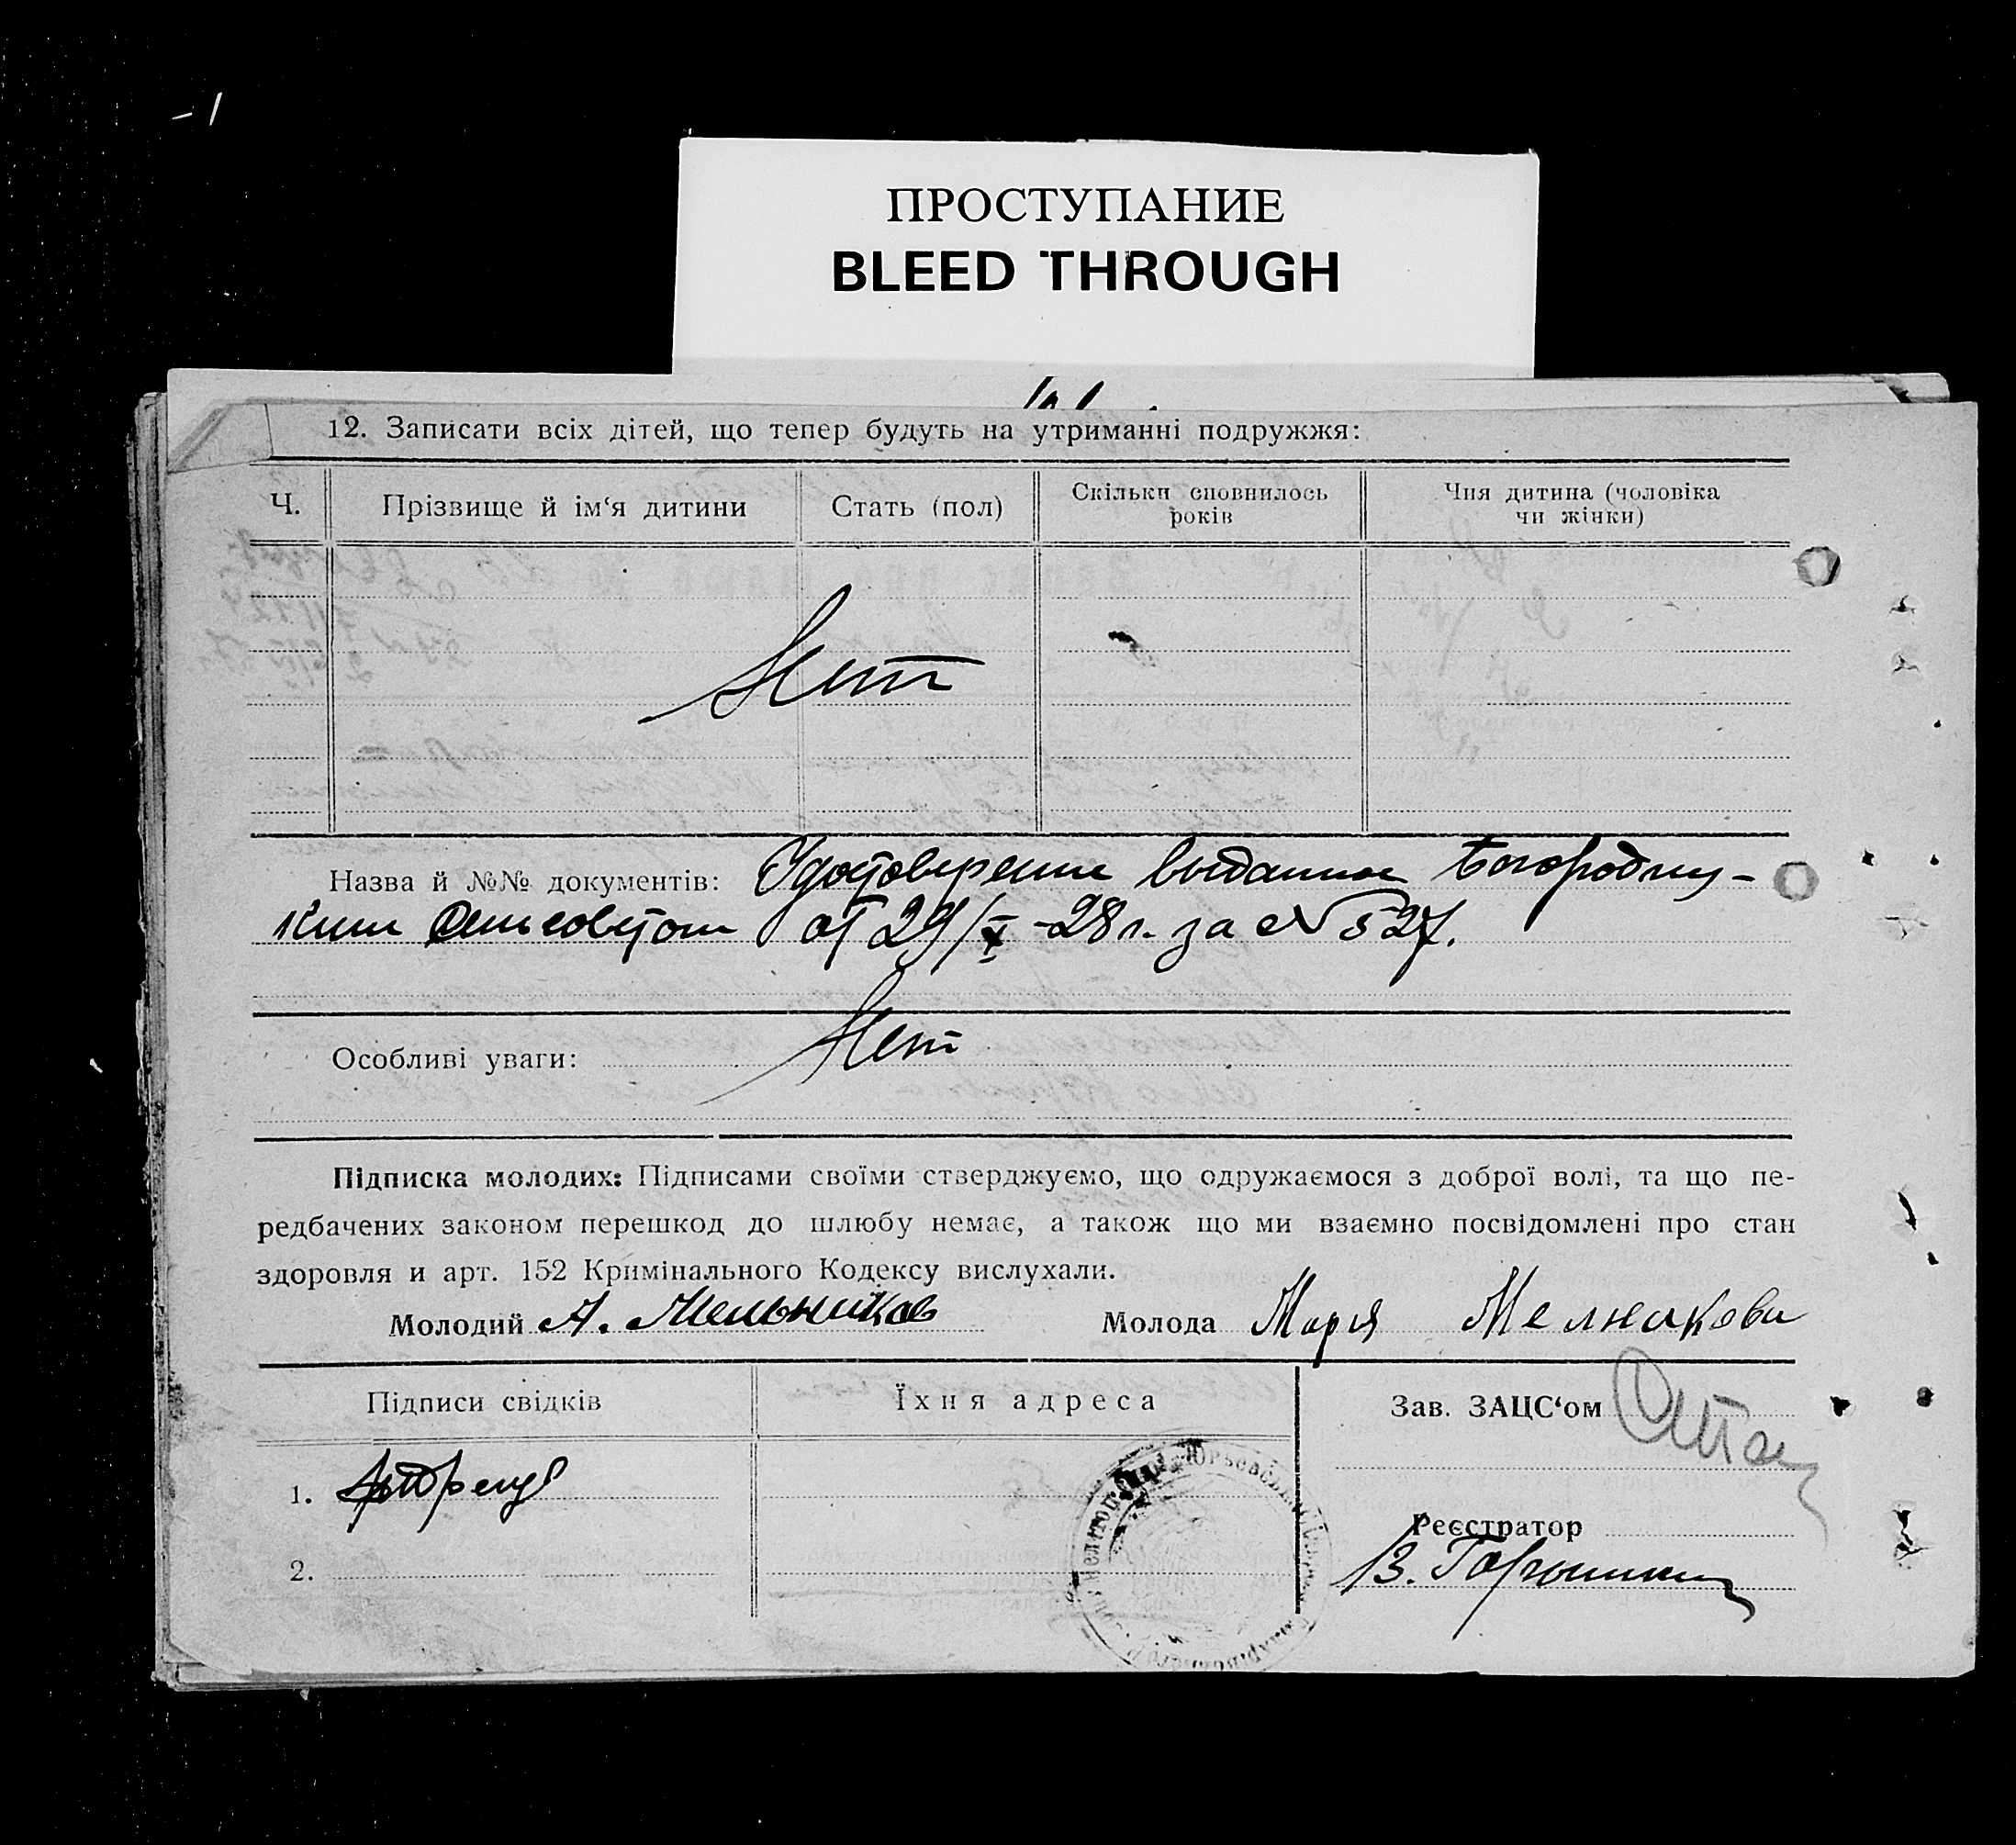 ПРОСТУПАНИЕ
BLEED THROUGH
12. Записати всіх дітей, що тепер будуть на утриманні подружжя:
Ч. Прізвище й ім‘я дитини Стать (пол) Скільки сповнилось років Чия дитина (чоловіка чи жінки)
Нет
Назва й №№ документів: Удостоверение выданное Богородицу-
ким Сельсоветом от 29/X-28 г. за № 527.
Особливі уваги: Нет
Підписка молодих: Підписами своїми стверджуємо, що одружаємося з доброї волі, та що пе-
редбачених законом перешкод до шлюбу немає, а також що ми взаємно посвідомлені про стан
здоровля и арт. 152 Кримінального Кодексу вислухали.
Молодий А. Мельников Молода Мария Мелникова
Підписи свідків Їхня адреса Зав. ЗАЦС‘ом
1.
Реєстратор
2.
В.